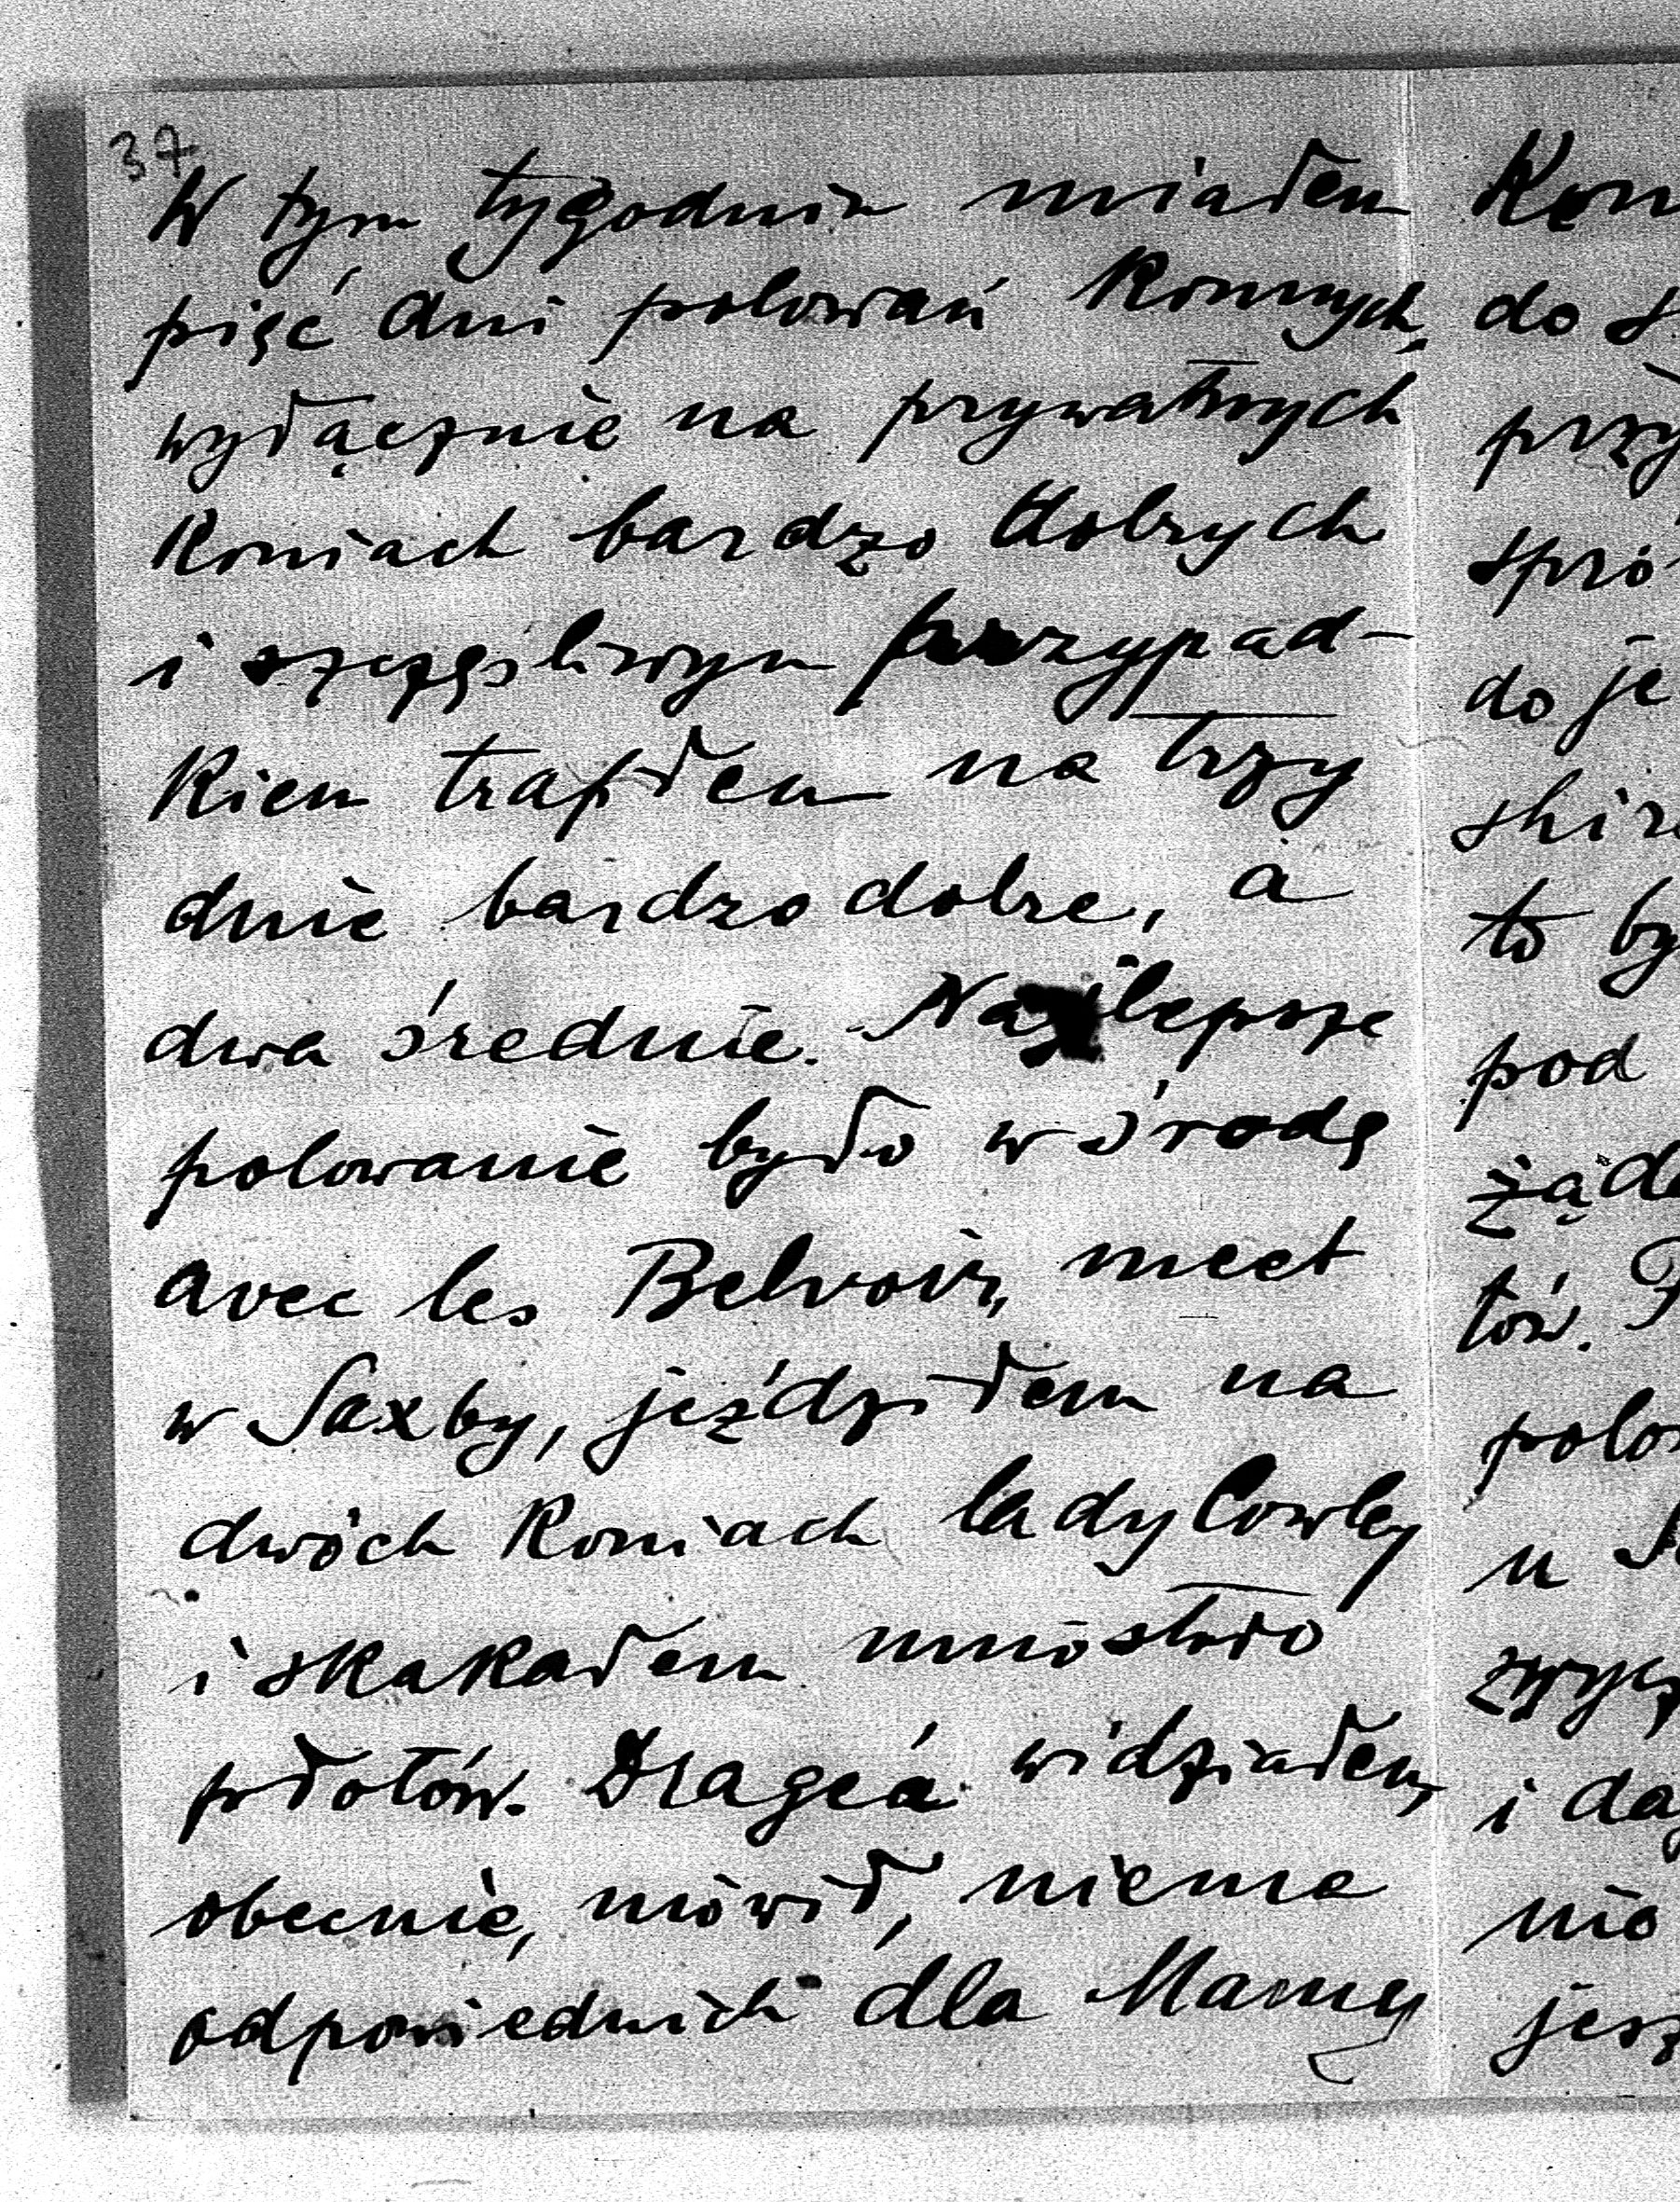 37
W tym tygodniu miałem
pięć dni polowań konnych,
wyłącznie na prywatnych
koniach bardzo dobrych
i szczęśliwym przypad-
kiem trafiłem na trzy
dnie bardzo dobre, a
dwa średnie. Najlepsze
polowanie było w środę
avec les Belvoir, meet
w Saxby, jeździłem na
dwóch koniach lady Cowley
i skakałem mnóstwo
płotów. Drageá widziałem,
obecnie, mówił, niema
odpowiednich dla Mamy
Kon
do s
przy
spró
do je
shire
to by
pod
żąda
tów. P
polo
u
zwyc
i da
nio
jesz